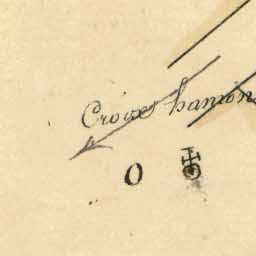 Croix hamon
O